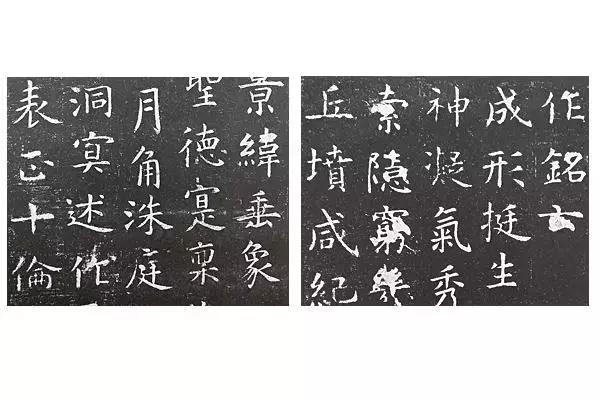 作銘云
成形挺生
神凝氣秀
索隱窮幾
丘墳咸紀
景緯垂象
聖德寔稟
月角洙庭
洞冥述作
表正十倫